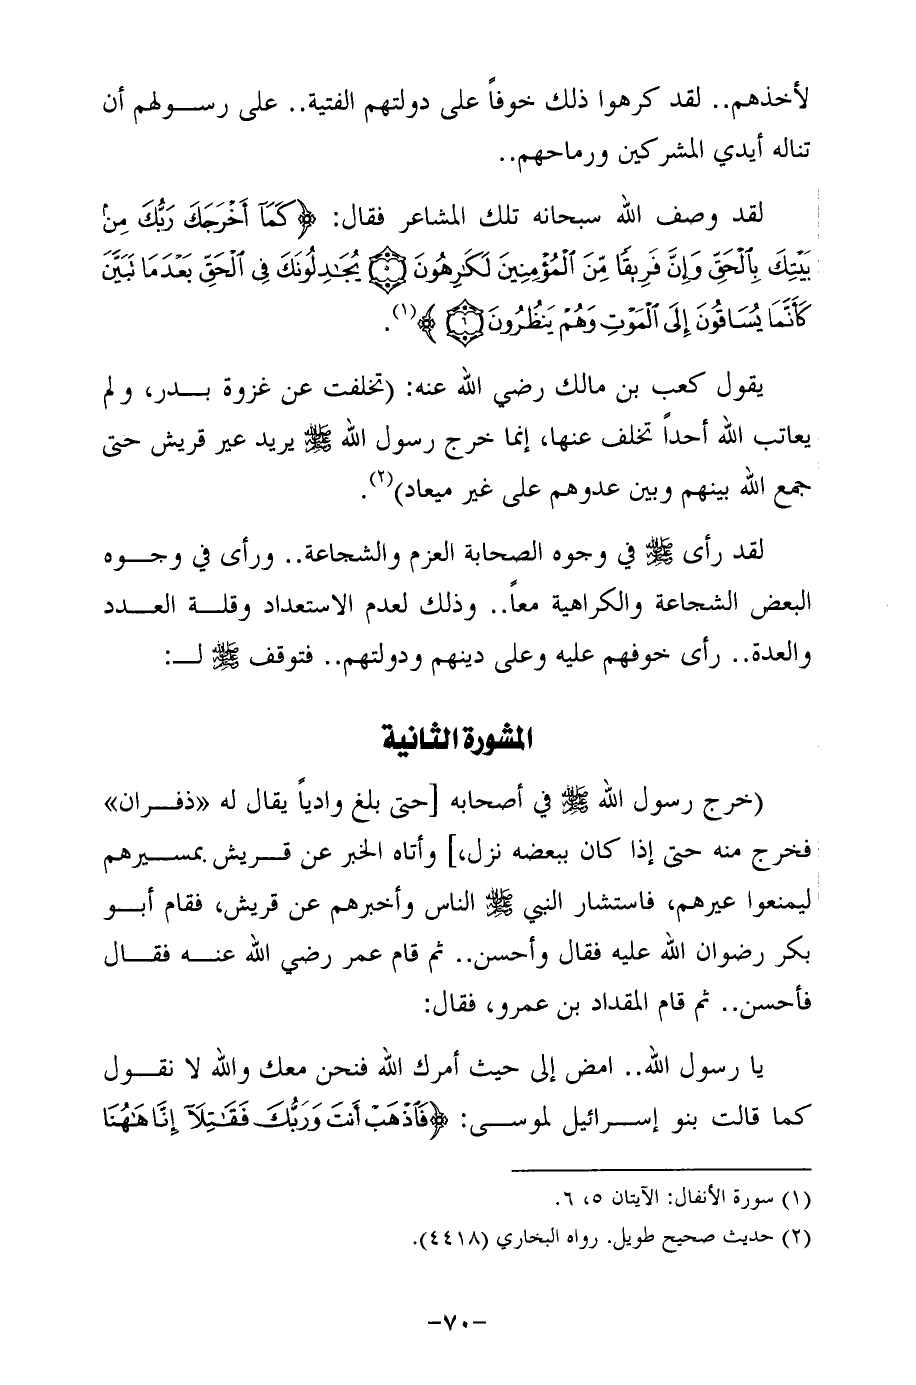 لأخذهم.. لقد كرهوا ذلك خوفاً على دولتهم الفتية.. على رسولهم أن
تناله أيدي المشركين ورماحهم..
لقد وصف الله سبحانه تلك المشاعر فقال: ﴿كَمَآ أَخْرَجَكَ رَبُّكَ مِنۢ
بَيْتِكَ بِٱلْحَقِّ وَإِنَّ فَرِيقًا مِّنَ ٱلْمُؤْمِنِينَ لَكَٰرِهُونَ ۝٥ يُجَٰدِلُونَكَ فِى ٱلْحَقِّ بَعْدَمَا نَبَيَّنَ
كَأَنَّمَا يُسَاقُونَ إِلَى ٱلْمَوْتِ وَهُمْ يَنظُرُونَ ۝٦﴾(١).
يقول كعب بن مالك رضي الله عنه: (تخلفت عن غزوة بدر، ولم
يعاتب الله أحداً تخلف عنها، إنما خرج رسول الله ﷺ يريد عير قريش حتى
جمع الله بينهم وبين عدوهم على غير ميعاد)(٢).
لقد رأى ﷺ في وجوه الصحابة العزم والشجاعة.. ورأى في وجوه
البعض الشجاعة والكراهية معاً.. وذلك لعدم الاستعداد وقلة العدد
والعدة.. رأى خوفهم عليه وعلى دينهم ودولتهم.. فتوقف ﷺ لـ:
المشورة الثانية
(خرج رسول الله ﷺ في أصحابه [حتى بلغ وادياً يقال له «ذفران»
فخرج منه حتى إذا كان ببعضه نزل،] وأتاه الخبر عن قريش بمسيرهم
ليمنعوا عيرهم، فاستشار النبي ﷺ الناس وأخبرهم عن قريش، فقام أبو
بكر رضوان الله عليه فقال وأحسن.. ثم قام عمر رضي الله عنه فقال
فأحسن.. ثم قام المقداد بن عمرو، فقال:
يا رسول الله.. امض إلى حيث أمرك الله فنحن معك والله لا نقول
كما قالت بنو إسرائيل لموسى: ﴿فَٱذْهَبْ أَنتَ وَرَبُّكَ فَقَٰتِلَآ إِنَّا هَٰهُنَا
(١) سورة الأنفال: الآيتان ٥، ٦.
(٢) حديث صحيح طويل. رواه البخاري (٤٤١٨).
-٧٠-